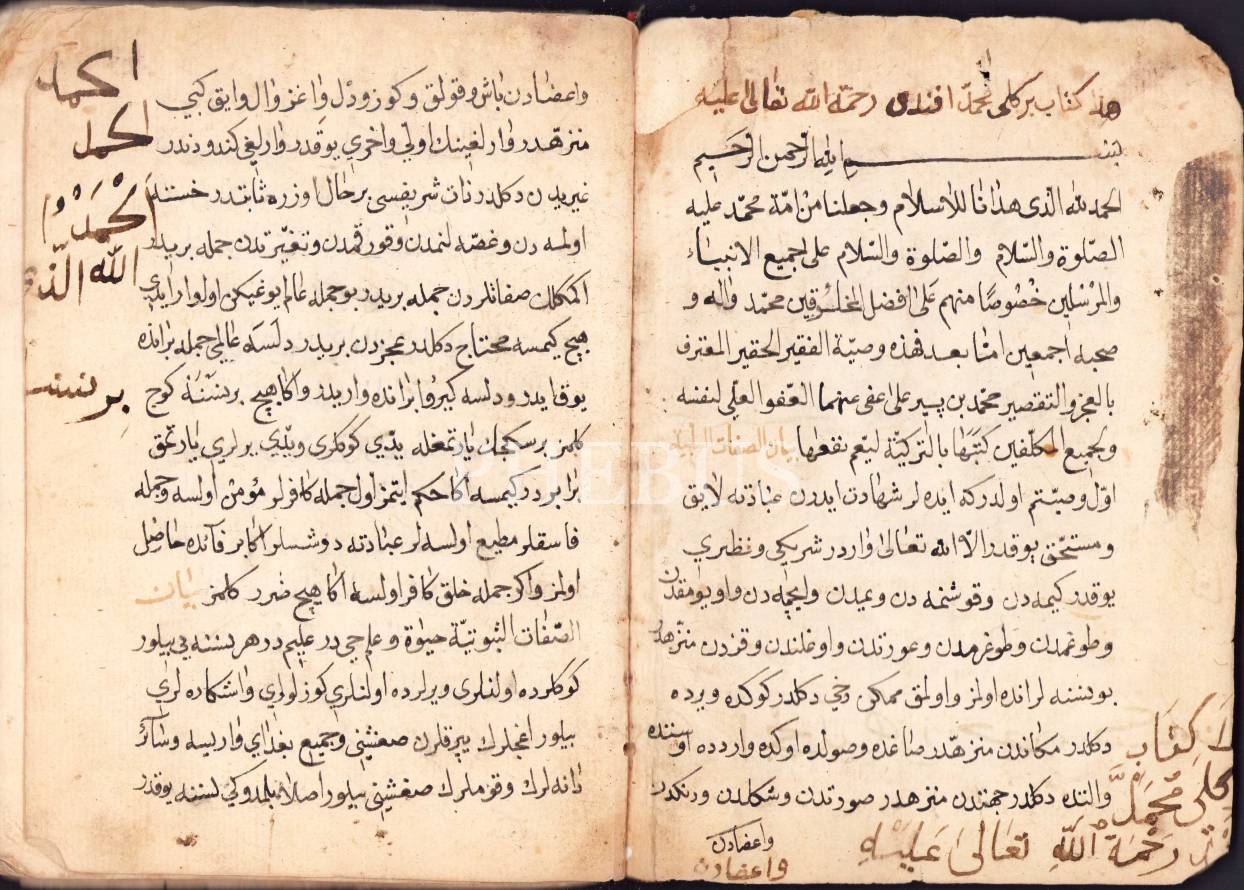 هذا كتاب بركلى محمد افندى رحمة الله تعالى عليه
بسم الله الرحمن الرحيم
الحمد لله الذى هدانا للاسلام وجعلنا من امّة محمّد عليه
الصّلوة والسّلام والصّلوة والسّلام على جميع الانبياء
والمرسلين خصوصًا منهم على افضل المخلوقين محمّد واله و
صحبه اجمعين امّا بعد فهذه وصيّة الفقير الحقير المعترف
بالعجز والتقصير محمّد بن پير على عفى عنهما العفو العلى لنفسه
ولجميع المكلّفين كتبتها بالتركيّة ليعم نفعها بيان الصفات السلبية
اوّل وصيّتم اولدركه ايده لر شهادت ايدرن عبادته لايق
ومستحق يوقدر الّا الله تعالى واردر شريكى ونظيرى
يوقدر كيمه دن وقوشمه دن وعيدن وايچمه دن واويومقدن
وطوغمدن وطوغرمدن وعورتدن واوغلندن وقزدن منزهدر
بو نسنه لر انده اولمز واولمق ممكن دخى دكلدر كوكده ويرده
دكلدر مكاندن منزهدر صاغده وصولده اوكده وارdده اوستنده
والتنده دكلدر جهتدن منزهدر صورتدن وشكلدن ورنكدن
واعضادن
واعضادن
كتاب
كلى محمد
رحمة الله تعالى عليه
واعضادن باش وقولق وكوز ودل واغز وال وايق كبى
منزهدر وارلغينك اولى واخرى يوقدر وارلغى كندوندندر
غيريدن دكلدر ذات شريفسى بر حال اوزره ثابتدر خسته
اولمه دن وغصّه لنمدن وقورقمدن وتغيّرتدن جمله بريدر
جمله بريدر بو جمله عالم يوغيكن اول وار ايدى
هيچ كيمسه محتاج دكلدر عجزدن بريدر دلسه عالمى جمله برانده
يوق ايدر ودلسه كيرو برانده وار ايدر واكا هيچ بر نسنه كوج
كلمز بر سكك ياراتمغله يدى كوكلرى ويدى يرلرى ياراتمق
برابردر كيمسه اكا حكم ايتمز اول جمله كافرلر مؤمن اولسه وجمله
فاسقلر مطيع اولسه لر عبادته دوشسلر اكا بر فائده حاصل
اولمز واكر جمله خلق كافر اولسه اكا هيچ ضرر كلمز بيان
الصّفات الثبوتيّة حيوة وعلم حى در عليم در هر نسنه يى بيلور
كوكلرده اولنلرى ويرلرده اولنلرى كوزلولرى واشكاره لرى
بيلور اغجلرك يپرقلرن صغيشنى وجميع بغداى واريسه وسائر
دانه لرك وقوملرك صغيشنى بيلور اصلا بلمدوكى نسنه يوقدر
الحمد
الحمد
الحمد
الله الذى
بر نسنه
PHEBUS